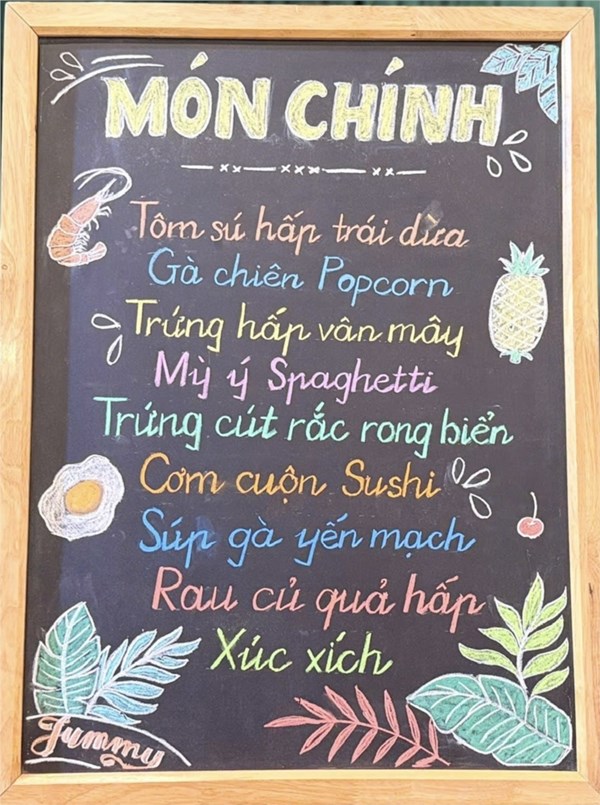 MÓN CHÍNH
Tôm sú hấp trái dừa
Gà chiên Popcorn
Trứng hấp vân mây
Mỳ ý Spaghetti
Trứng cút rắc rong biển
Cơm cuộn Sushi
Súp gà yến mạch
Rau củ quả hấp
Xúc xích
Yummy